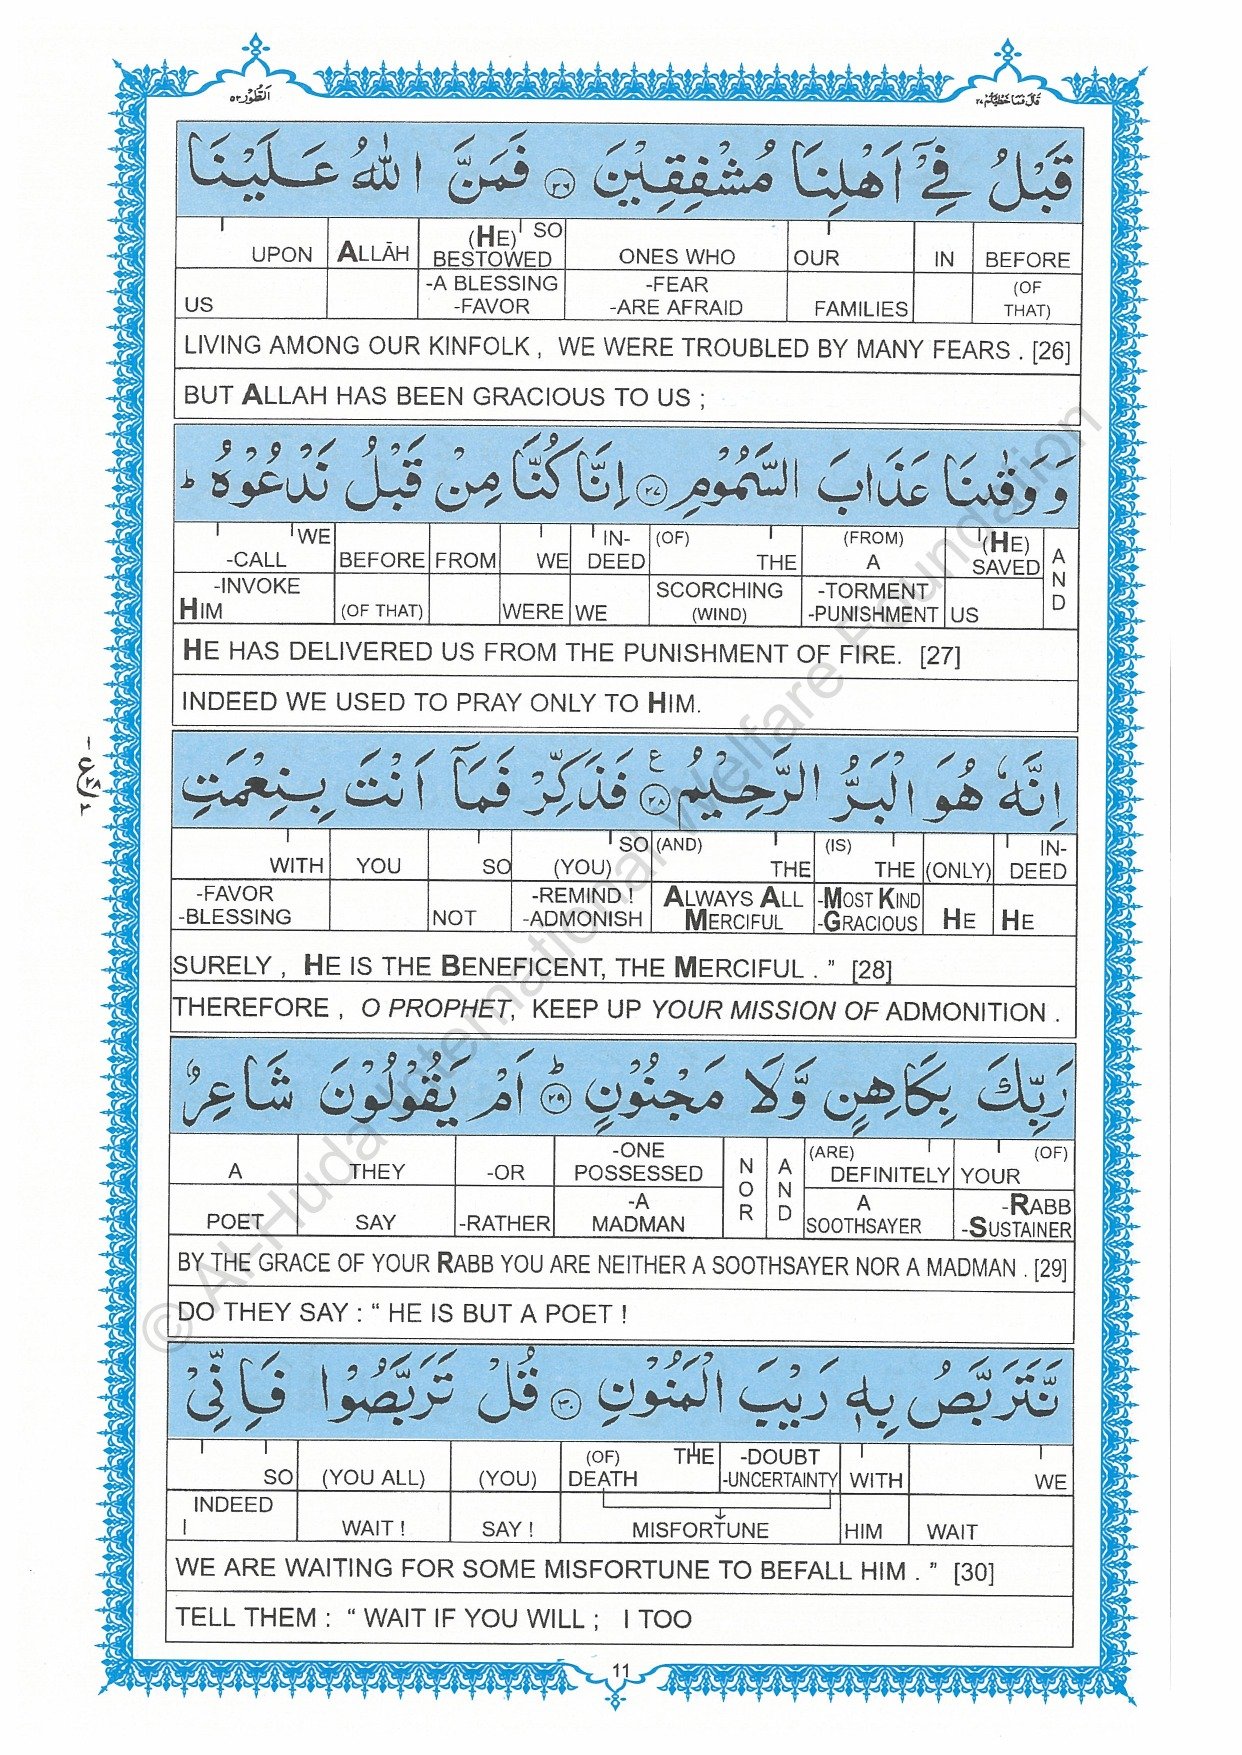 اَلطُّوْر ٥٢
قَالَ فَمَا خَطْبُكُمْ ٢٧
قَبْلُ فِيْٓ اَهْلِنَا مُشْفِقِيْنَ ٢٦ فَمَنَّ اللّٰهُ عَلَيْنَا
UPON ALLĀH (HE) SO BESTOWED ONES WHO OUR IN BEFORE
US -A BLESSING -FAVOR -FEAR -ARE AFRAID FAMILIES (OF THAT)
LIVING AMONG OUR KINFOLK , WE WERE TROUBLED BY MANY FEARS . [26]
BUT ALLAH HAS BEEN GRACIOUS TO US ;
وَوَقٰىنَا عَذَابَ السَّمُوْمِ ٢٧ اِنَّا كُنَّا مِنْ قَبْلُ نَدْعُوْهُ ؕ
WE -CALL BEFORE FROM WE IN-DEED (OF) THE (FROM) A (HE) SAVED AND
-INVOKE HIM (OF THAT) WERE WE SCORCHING (WIND) -TORMENT -PUNISHMENT US
HE HAS DELIVERED US FROM THE PUNISHMENT OF FIRE. [27]
INDEED WE USED TO PRAY ONLY TO HIM.
اِنَّهٗ هُوَ الْبَرُّ الرَّحِيْمُ ٢٨ ع فَذَكِّرْ فَمَآ اَنْتَ بِنِعْمَتِ
١ ع ٢٨ ٢
WITH YOU SO SO (YOU) (AND) THE (IS) THE (ONLY) IN-DEED
-FAVOR -BLESSING NOT -REMIND ! -ADMONISH ALWAYS ALL MERCIFUL -MOST KIND -GRACIOUS HE HE
SURELY , HE IS THE BENEFICENT, THE MERCIFUL . ” [28]
THEREFORE , O PROPHET, KEEP UP YOUR MISSION OF ADMONITION .
رَبِّكَ بِكَاهِنٍ وَّلَا مَجْنُوْنٍ ؕ ٢٩ اَمْ يَقُوْلُوْنَ شَاعِرٌ
A THEY -OR -ONE POSSESSED NOR AND (ARE) DEFINITELY (OF) YOUR
POET SAY -RATHER -A MADMAN A SOOTHSAYER -RABB -SUSTAINER
BY THE GRACE OF YOUR RABB YOU ARE NEITHER A SOOTHSAYER NOR A MADMAN . [29]
DO THEY SAY : “ HE IS BUT A POET !
نَّتَرَبَّصُ بِهٖ رَيْبَ الْمَنُوْنِ ٣٠ قُلْ تَرَبَّصُوْا فَاِنِّيْ
SO (YOU ALL) (YOU) (OF) DEATH THE -DOUBT -UNCERTAINTY WITH WE
INDEED I WAIT ! SAY ! MISFORTUNE HIM WAIT
WE ARE WAITING FOR SOME MISFORTUNE TO BEFALL HIM . ” [30]
TELL THEM : “ WAIT IF YOU WILL ; I TOO
11
© Al-Huda International Welfare Foundation